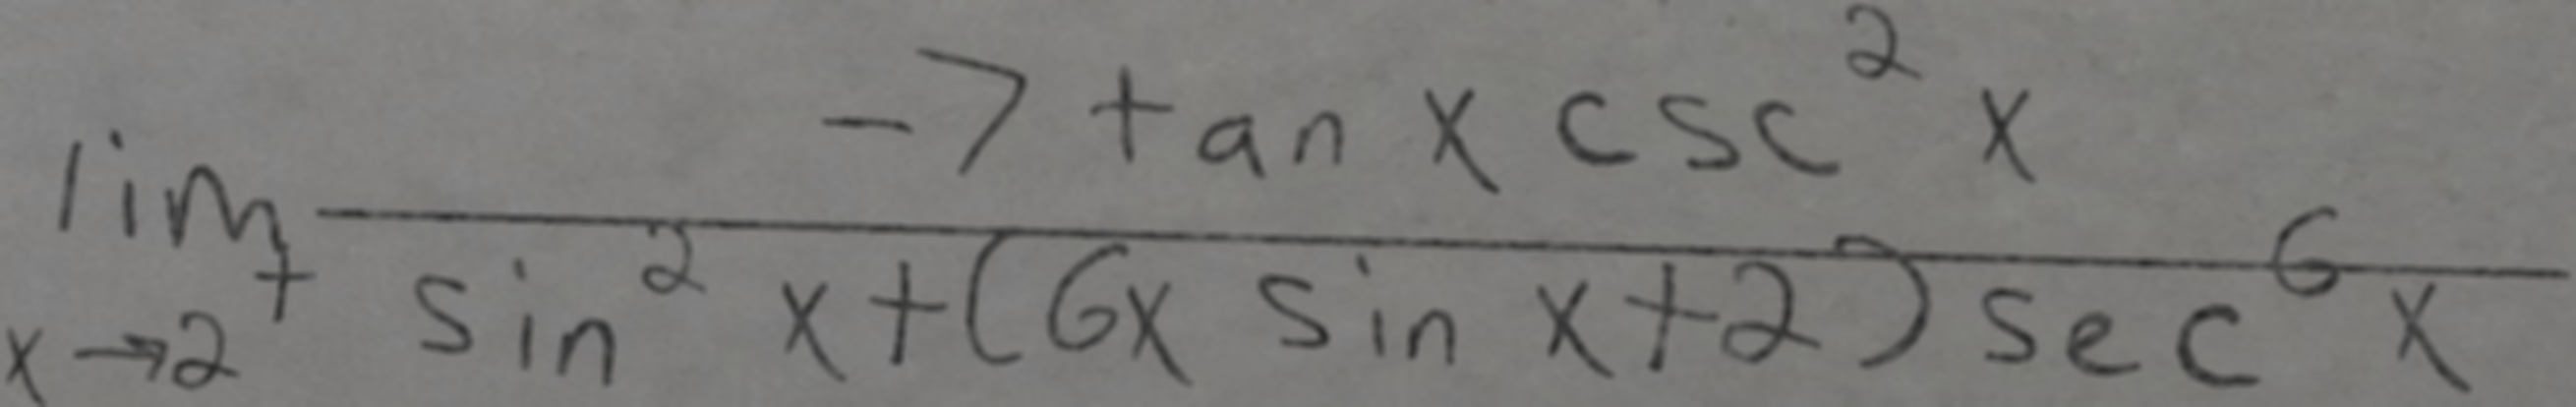 \lim_{x \to 2^+} \frac{-7 \tan x \csc^2 x}{\sin^2 x + (6x \sin x + 2) \sec^6 x}